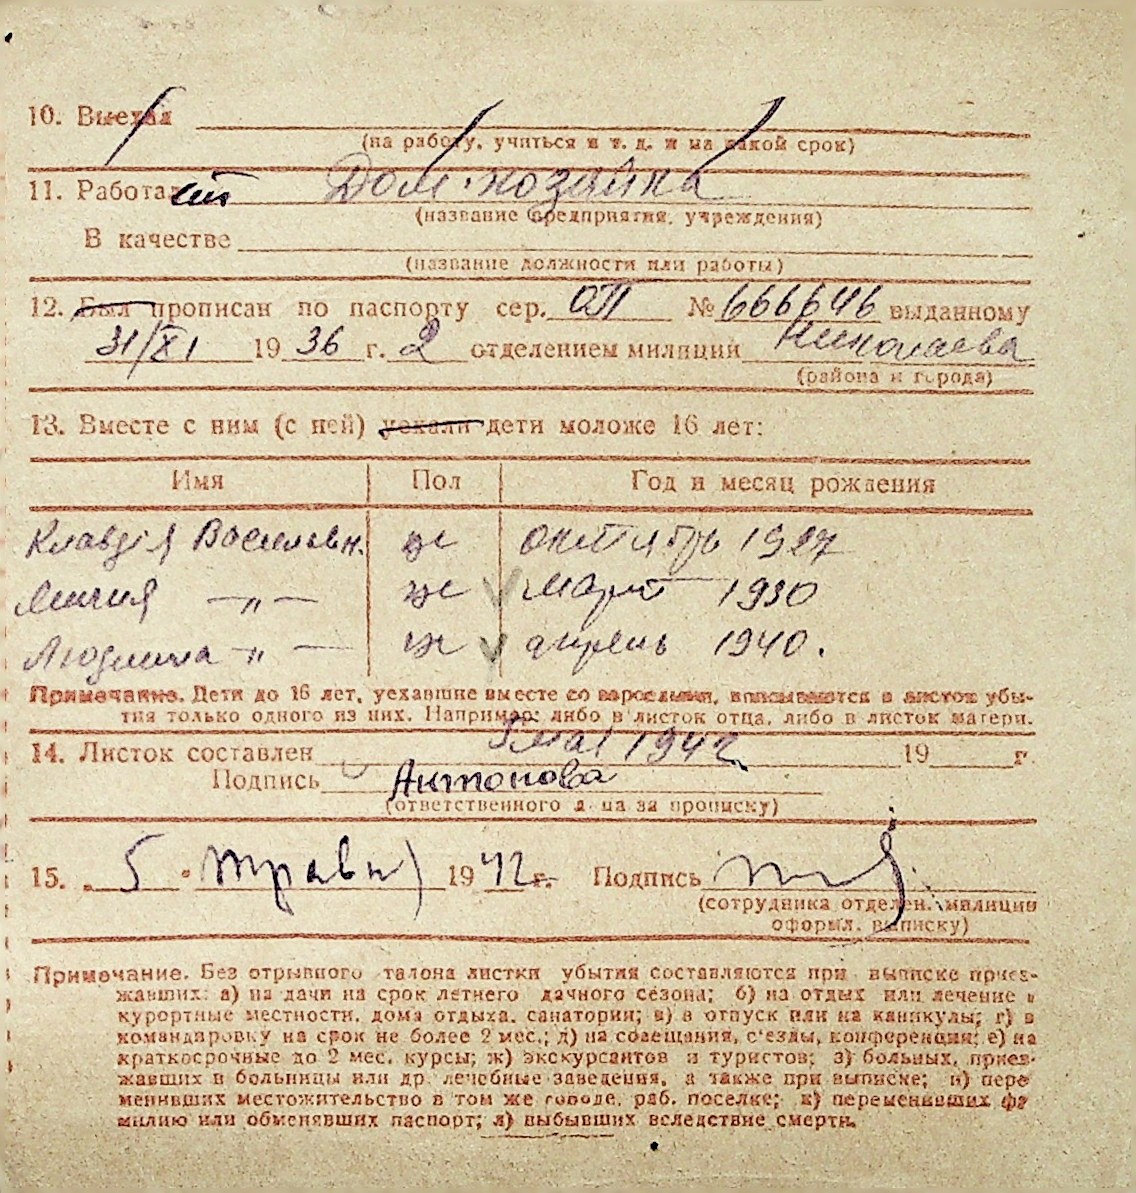 10. Выехал
(на работу, учиться и т. д. и на какой срок)
11. Работает Дом. хозайка
(название предприятия, учреждения)
В качестве
(название должности или работы)
12. Был прописан по паспорту сер. ОП № 666646 выданному
31/XI 1936 г. 2 отделением милиции Николаева
(района и города)
13. Вместе с ним (с ней) уехали дети моложе 16 лет:
Имя Пол Год и месяц рождения
Клавдія Василевн. ж октябрь 1927
Лилия —"— ж март 1930
Людмила —"— ж апрель 1940.
Примечание. Дети до 16 лет, уехавшие вместе со взрослыми, вписываются в листок убы-
тия только одного из них. Например: либо в листок отца, либо в листок матери.
14. Листок составлен 5 мая 1942 19 г.
Подпись Антонова
(ответственного лица за прописку)
15. „ 5 " травня 1942 г. Подпись
(сотрудника отделен. милиции
оформл. выписку)
Примечание. Без отрывного талона листки убытия составляются при выписке приез-
жавших: а) на дачи на срок летнего дачного сезона; б) на отдых или лечение в
курортные местности, дома отдыха, санатории; в) в отпуск или на каникулы; г) в
командировку на срок не более 2 мес.; д) на совещания, с'езды, конференции; е) на
краткосрочные до 2 мес. курсы; ж) экскурсантов и туристов; з) больных, приез-
жавших в больницы или др. лечебные заведения, а также при выписке; и) пере
менивших местожительство в том же городе, раб. поселке; к) переменивших фа
милию или обменявших паспорт; л) выбывших вследствие смерти.